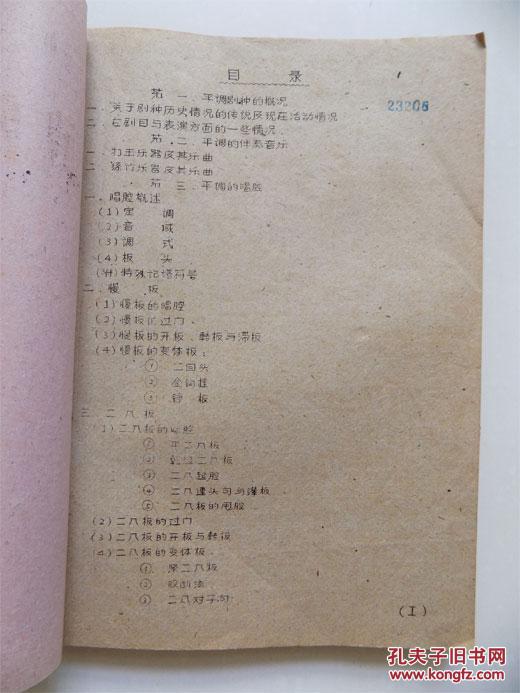 目 录
第一、平调剧种的概况
一、关于剧种历史情况的传说及现在活动情况
23206
二、在剧目与表演方面的一些情况
第二、平调的伴奏音乐
一、打击乐器及其乐曲
二、丝竹乐器及其乐曲
第三、平调的唱腔
一、唱腔概述
(1) 定 调
(2) 音 域
(3) 调 式
(4) 板 头
(附) 特殊记谱符号
二、慢 板
(1) 慢板的唱腔
(2) 慢板的过门
(3) 慢板的开板、转板与滞板
(4) 慢板的变体板:
① 二回头
② 金钩挂
③ 板
三、二八板
(1) 二八板的唱腔
① 平二八板
② 二八板
③ 二八起腔
④ 二八 头句与 板
⑤ 二八板的甩腔
(2) 二八板的过门
(3) 二八板的开板与转板
(4) 二八板的变体板
① 二八板
②
③ 二八对子句
(I)
孔夫子旧书网